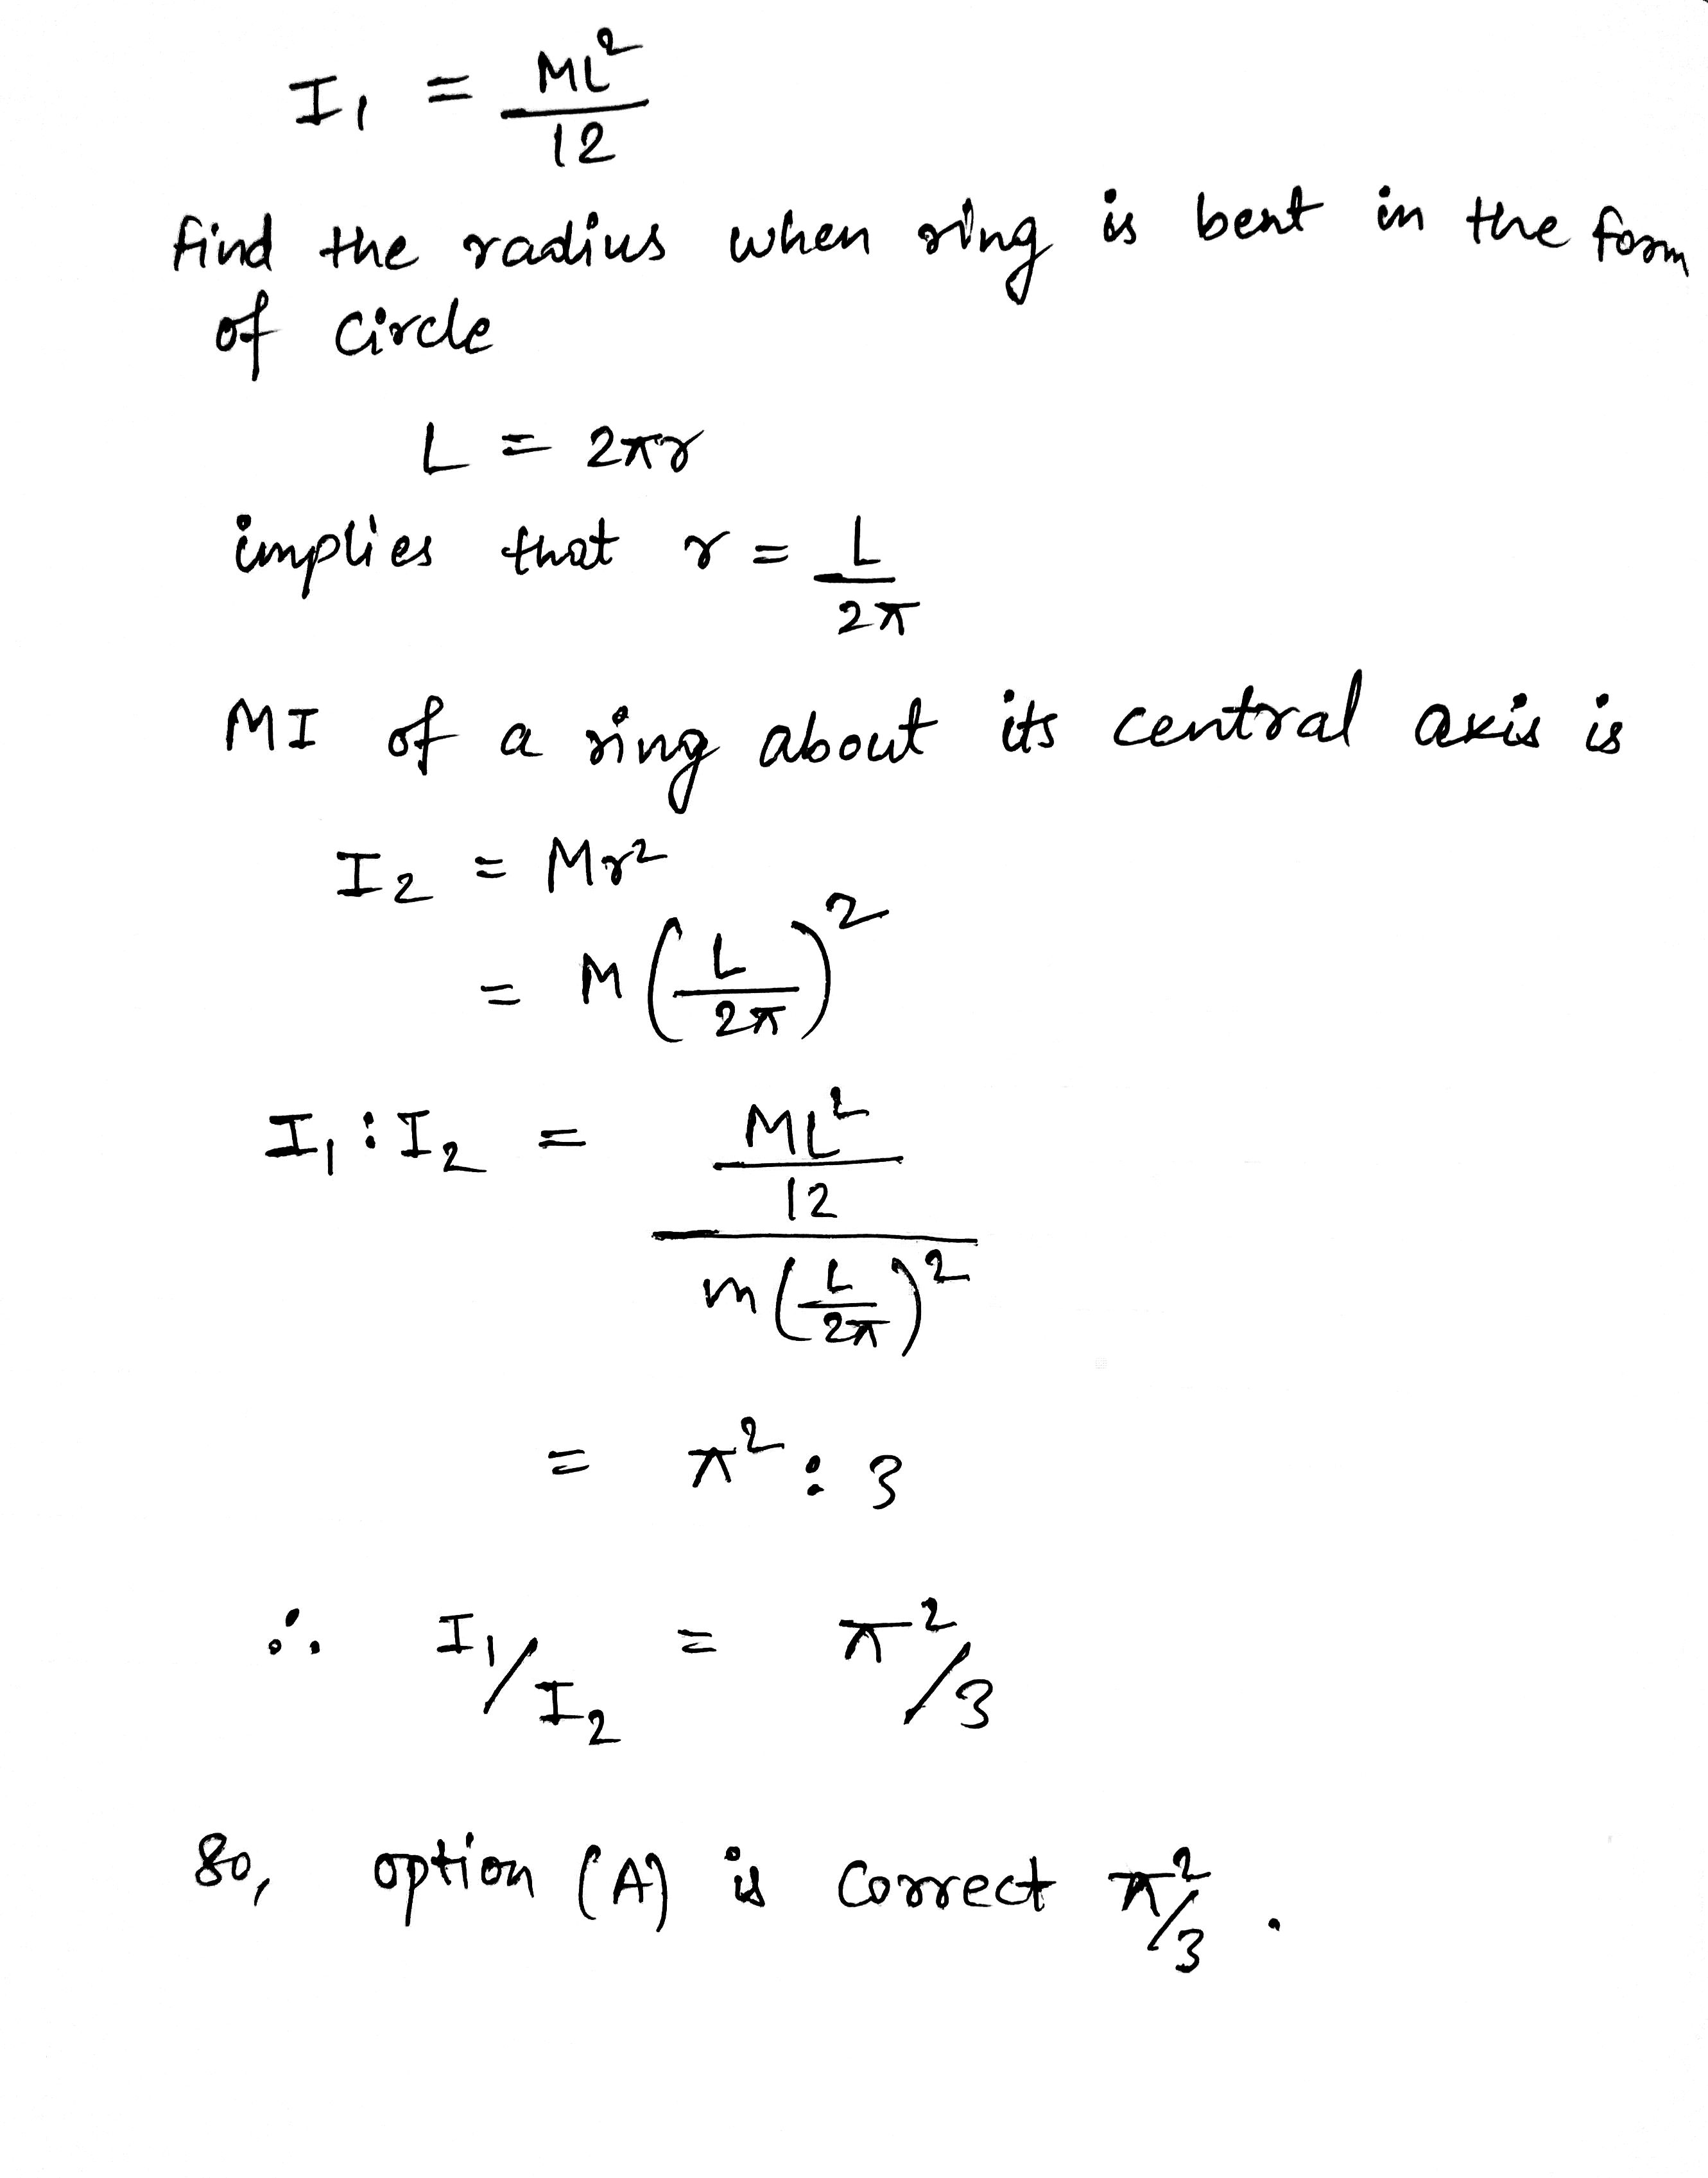 I₁ = ML²/12
find the radius when ring is bent in the form
of circle
L = 2πr
implies that r = L/2π
MI of a ring about its central axis is
I₂ = Mr²
= M(L/2π)²
I₁ : I₂ = (ML²/12)/(m(L/2π)²)
= π² : 3
∴ I₁/I₂ = π²/3
So, option (A) is correct π²/3.